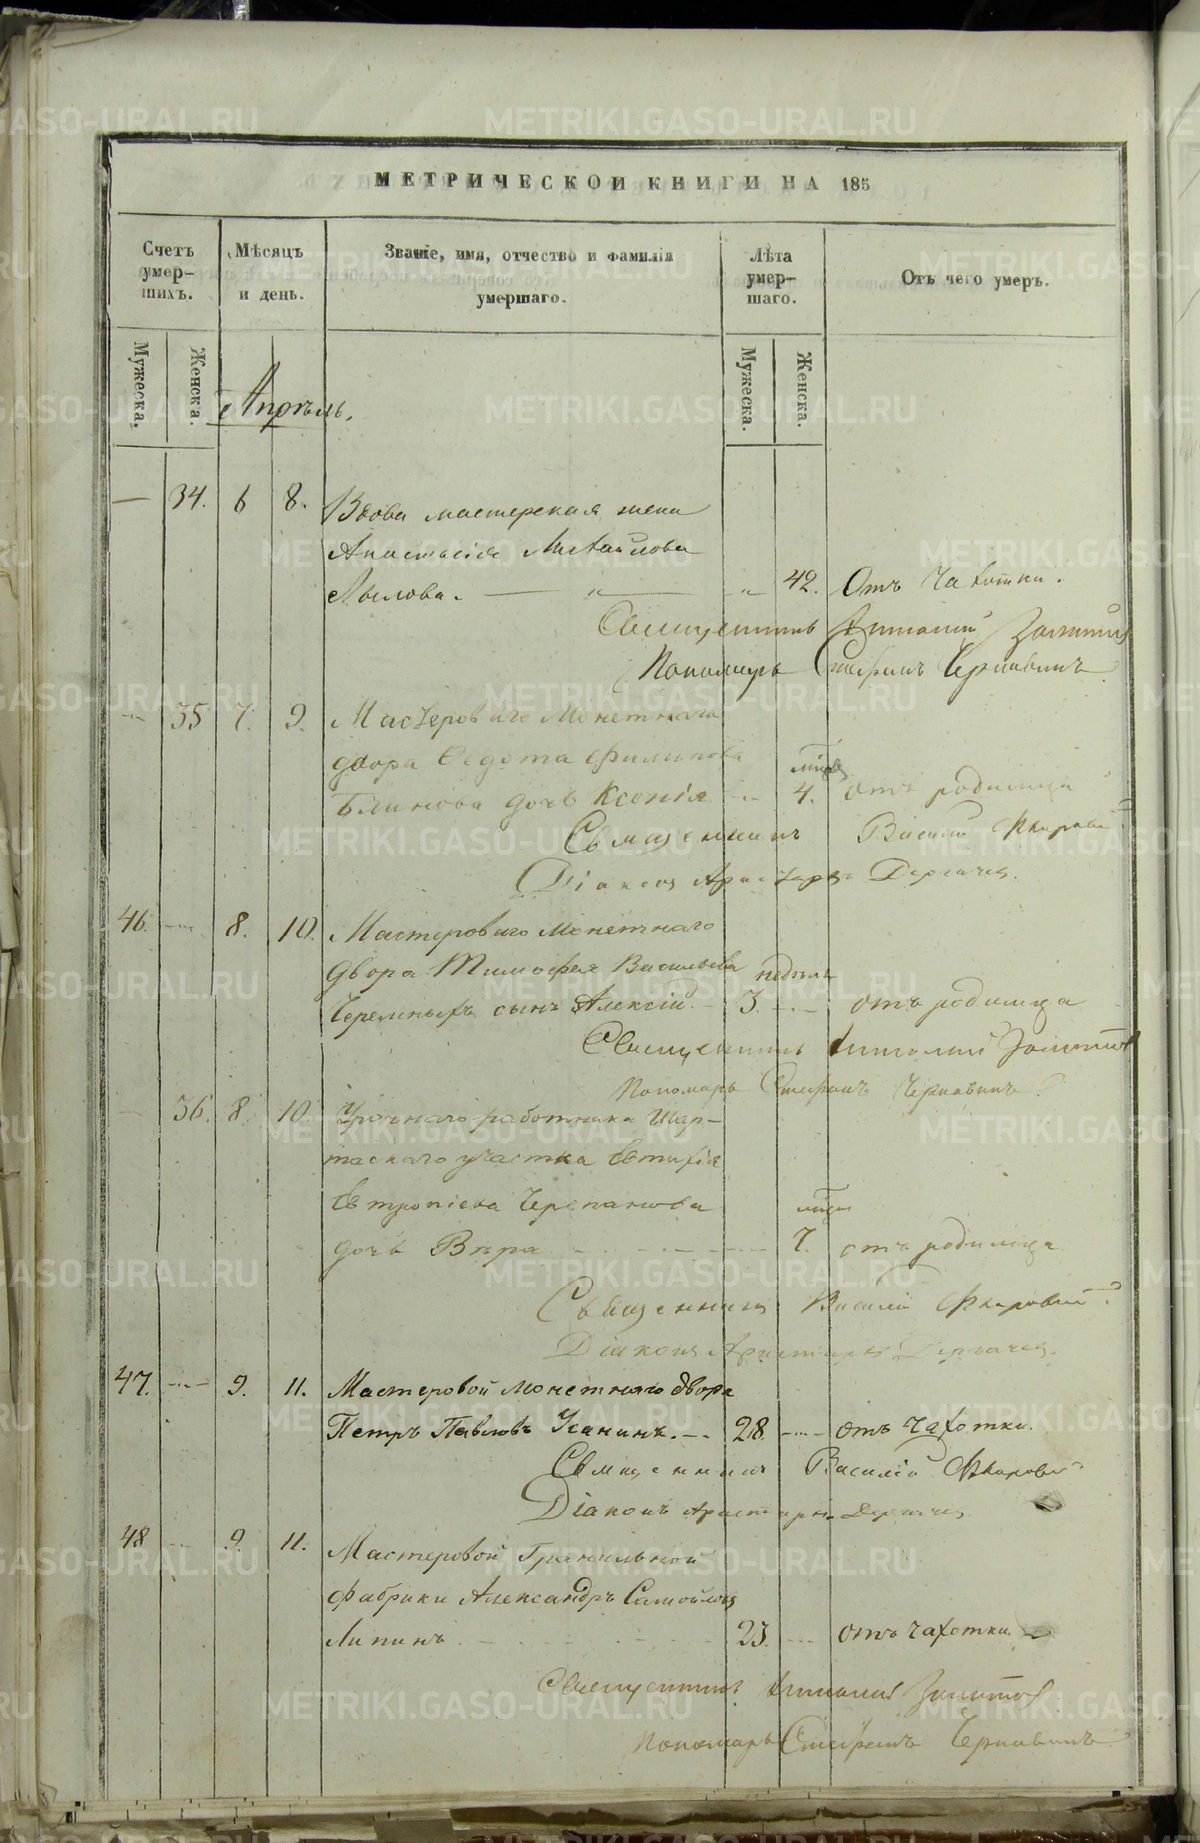 МЕТРИЧЕСКОЙ КНИГИ НА 185
Счетъ умершихъ.
Мѣсяцъ и день.
Званіе, имя, отчество и фамилія умершаго.
Лѣта умершаго.
Отъ чего умеръ.
Мужеска.
Женска.
Мужеска.
Женска.
Апрѣль.
— 34. 6 8. Вдова мастерская жена
Анастасія Михайлова
42. Отъ Чахотки.
Священникъ Антоній
Пономарь Стефанъ Чернавинъ
35 7. 9. Мастероваго Монетнаго
двора Федота Филипова мѣся
Блинова дочь Ксенія 4. отъ родимца
Священникъ Василій
Діаконъ Аристархъ Дергачев
46. 8. 10. Мастероваго Монетнаго
двора Тимофея Васильева недѣль
сынъ Алексій. 3. отъ родимца
Священникъ Антоній
Пономарь Стефанъ Чернавинъ
36. 8. 10 Урочнаго работника Шар-
ташскаго участка Евтихія
Евтропіева Черепанова мѣся
дочь Вѣра 7. отъ родимца
Священникъ Василій
Діаконъ Аристархъ Дергачев
47. 9. 11. Мастеровой Монетнаго двора
Петръ Павловъ Усанинъ. 28. отъ чахотки.
Священникъ Василій
Діаконъ Аристархъ Дергачев
48 9. 11. Мастеровой Гранильной
фабрики Александръ Самойловъ
Липинъ 23. отъ чахотки.
Священникъ Антоній
Пономарь Стефанъ Чернавинъ
METRIKI.GASO-URAL.RU